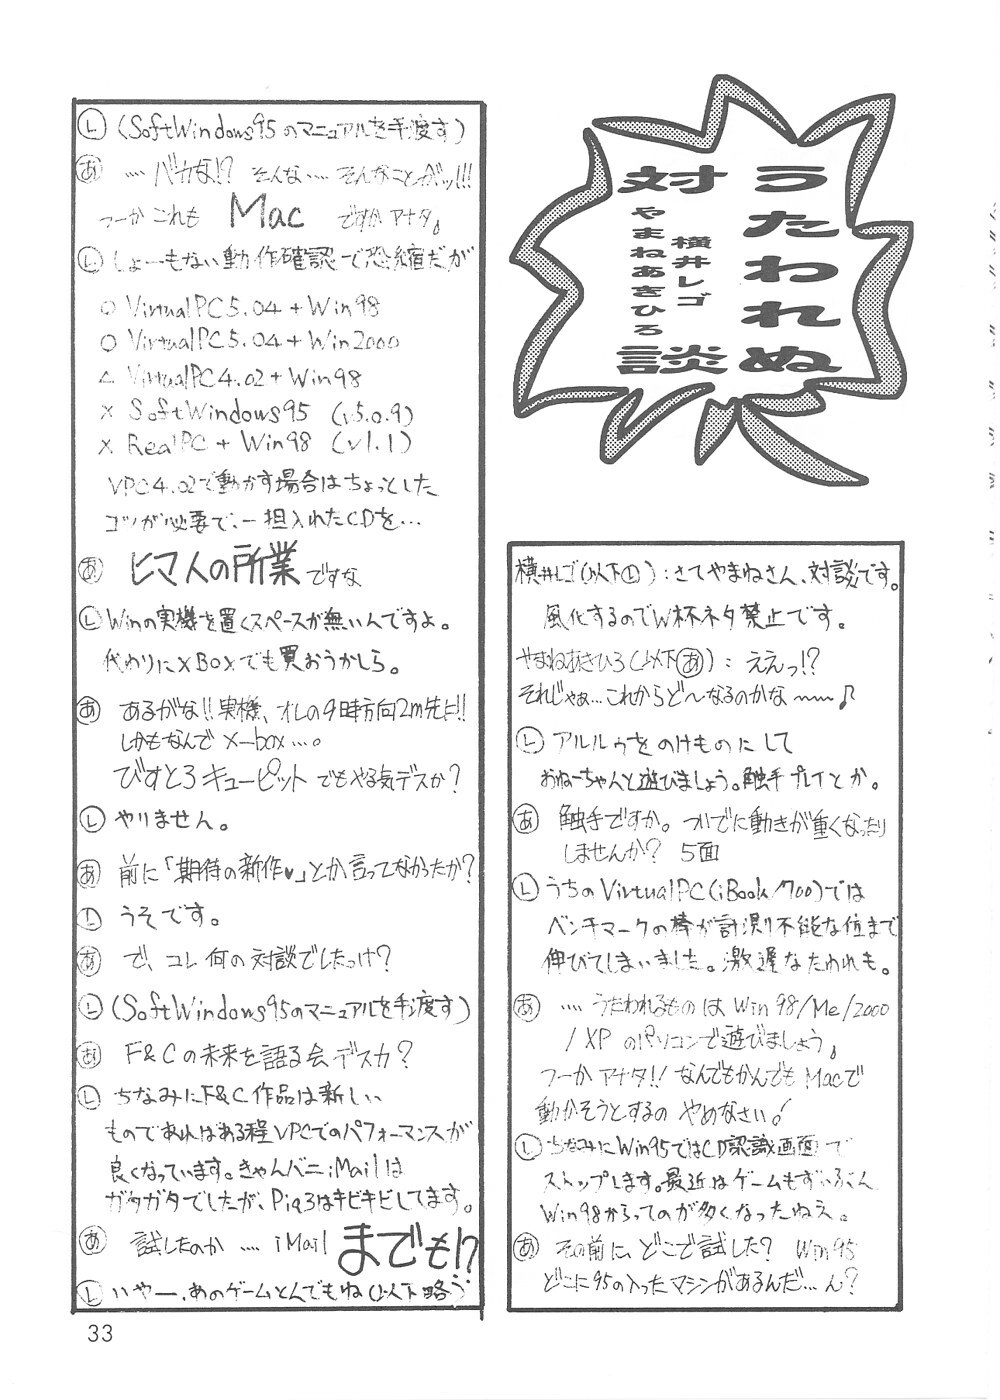 うたわれぬ
対談
横井レゴ
やまねあきひろ
横井レゴ(以下Ⓛ):さてやまねさん、対談です。
風化するのでW杯ネタ禁止です。
やまねあきひろ(以下あ): ええっ!?
それじゃぁ…これからど〜なるのかな〜〜♪
Ⓛ アルルゥをのけものにして
おねーちゃんと遊びましょう。触手プレイとか。
あ 触手ですか。ついでに動きが重くなったり
しませんか? 5面
Ⓛ うちのVirtualPC(iBook/700)では
ベンチマークの棒が計測不能な位まで
伸びてしまいました。激遅なたわれも。
あ ‥‥うたわれるものは Win98/Me/2000
/XP のパソコンで遊びましょう。
つーかアナタ!! なんでもかんでもMacで
動かそうとするのやめなさい!
Ⓛ ちなみにWin95ではCD認識画面で
ストップします。最近はゲームもずいぶん
Win98からってのが多くなったねえ。
あ その前に、どこで試した? Win95
どこに95の入ったマシンがあるんだ…ん?
Ⓛ (SoftWindows95のマニュアルを手渡す)
あ ‥‥バカな!? そんな‥‥そんなことがッ!!!
つーかこれも Mac ですかアナタ。
Ⓛ しょーもない動作確認で恐縮だが
○ VirtualPC5.04+Win98
○ VirtualPC5.04+Win2000
△ VirtualPC4.02+Win98
× SoftWindows95 (v5.0.9)
× RealPC+Win98 (v1.1)
VPC4.02で動かす場合はちょっとした
コツが必要で、一担入れたCDを…
あ ヒマ人の所業ですな
Ⓛ Winの実機を置くスペースが無いんですよ。
代わりにXBoxでも買おうかしら。
あ あるがな!!実機、オレの9時方向2m先に!!
しかもなんで X-box…。
びすとろキューピットでもやる気デスか?
Ⓛ やりません。
あ 前に「期待の新作♥」とか言ってなかったか?
Ⓛ うそです。
あ で、コレ何の対談でしたっけ?
Ⓛ (SoftWindows95のマニュアルを手渡す)
あ F&Cの未来を語る会デスカ?
Ⓛ ちなみにF&C作品は新しい
ものであればある程VPCでのパフォーマンスが
良くなっています。きゃんバニiMailは
ガタガタでしたが、Pia3はキビキビしてます。
あ 試したのか‥‥iMailまでも!?
Ⓛ いやー、あのゲームとんでもね(以下略)
33